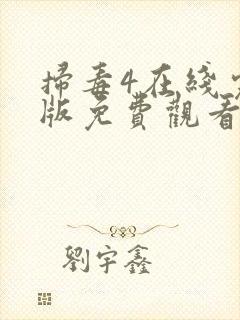 掃毒4在綫
版免費觀看
劉宇鑫